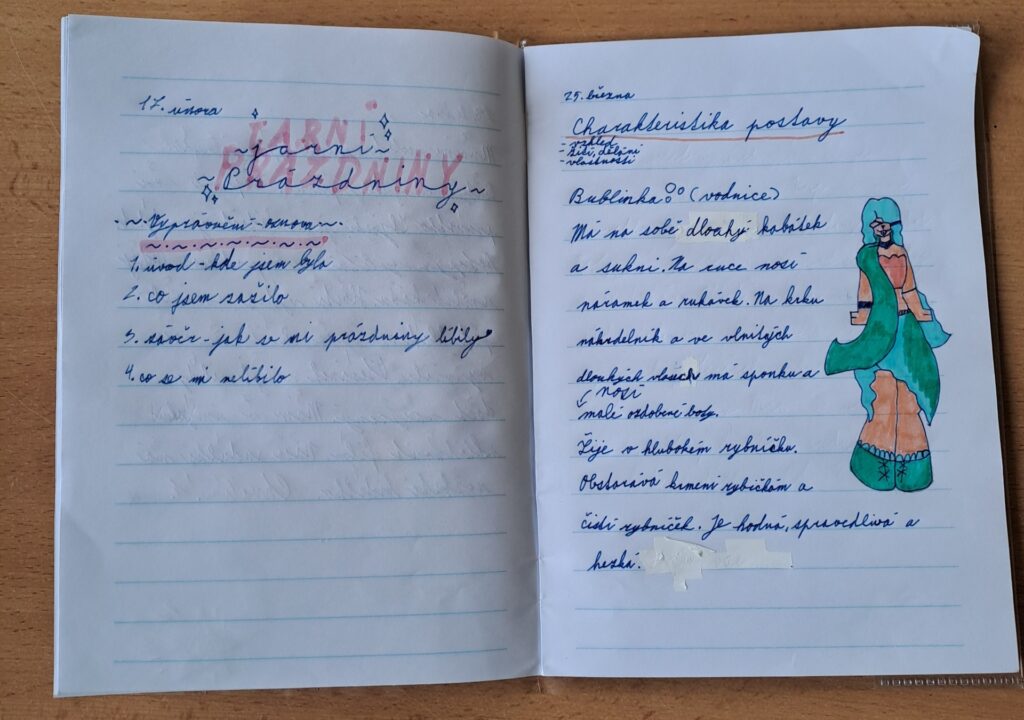 17. února
JARNÍ
~jarní~
PRÁZDNINY
~Prázdniny~
Vyprávění - osnova
1. úvod - kde jsem byla
2. co jsem zažila
3. závěr - jak se mi prázdniny líbily
4. co se mi nelíbilo
25. března
Charakteristika postavy
- vzhled
- žití, dělání
- vlastnosti
Bublinka (vodnice)
Má na sobě dlouhý kabátek
a sukni. Na ruce nosí
náramek a rukávek. Na krku
náhrdelník a ve vlnitých
dlouhých vlasech má sponku a
nosí
malé ozdobené boty.
Žije v hlubokém rybníčku.
Obstarává krmení rybičkám a
čistí rybníček. Je hodná, spravedlivá a
hezká.